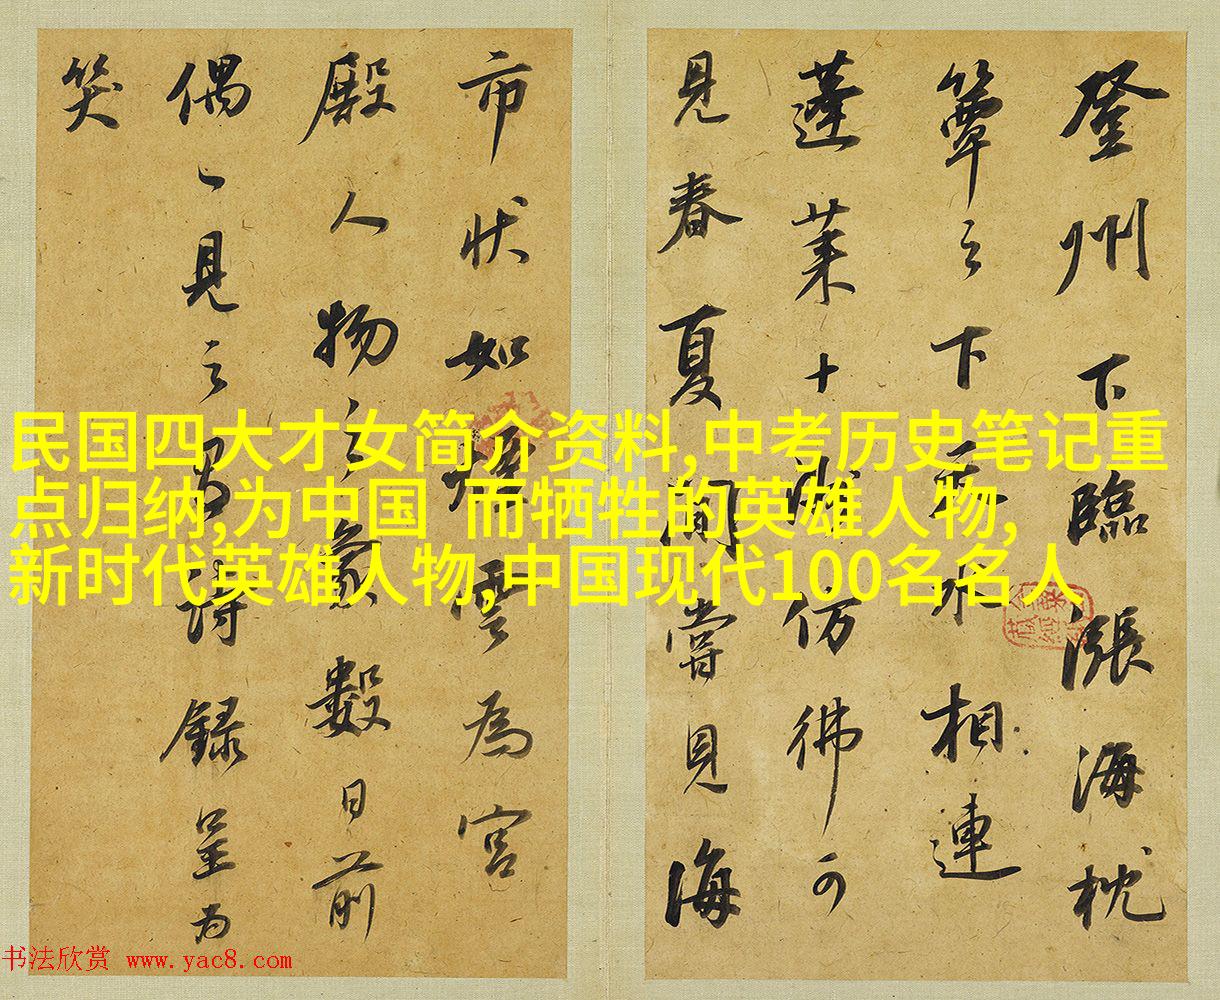 民国四大才女简介资料,中考历史笔记重
点归纳,为中国 而牺牲的英雄人物,
新时代英雄人物,中国现代100名名人
登州下臨漲海枕
簟之下天水相連
蓬萊十洲仿彿可
見春夏間嘗見海
市狀如煙雲為宮
殿人物之象數日前
偶見之詩録呈為
笑
书法欣赏 www.yac8.com